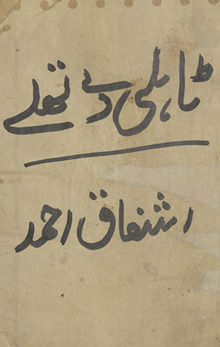 ٹاہلی دے تھلے
اشفاق احمد